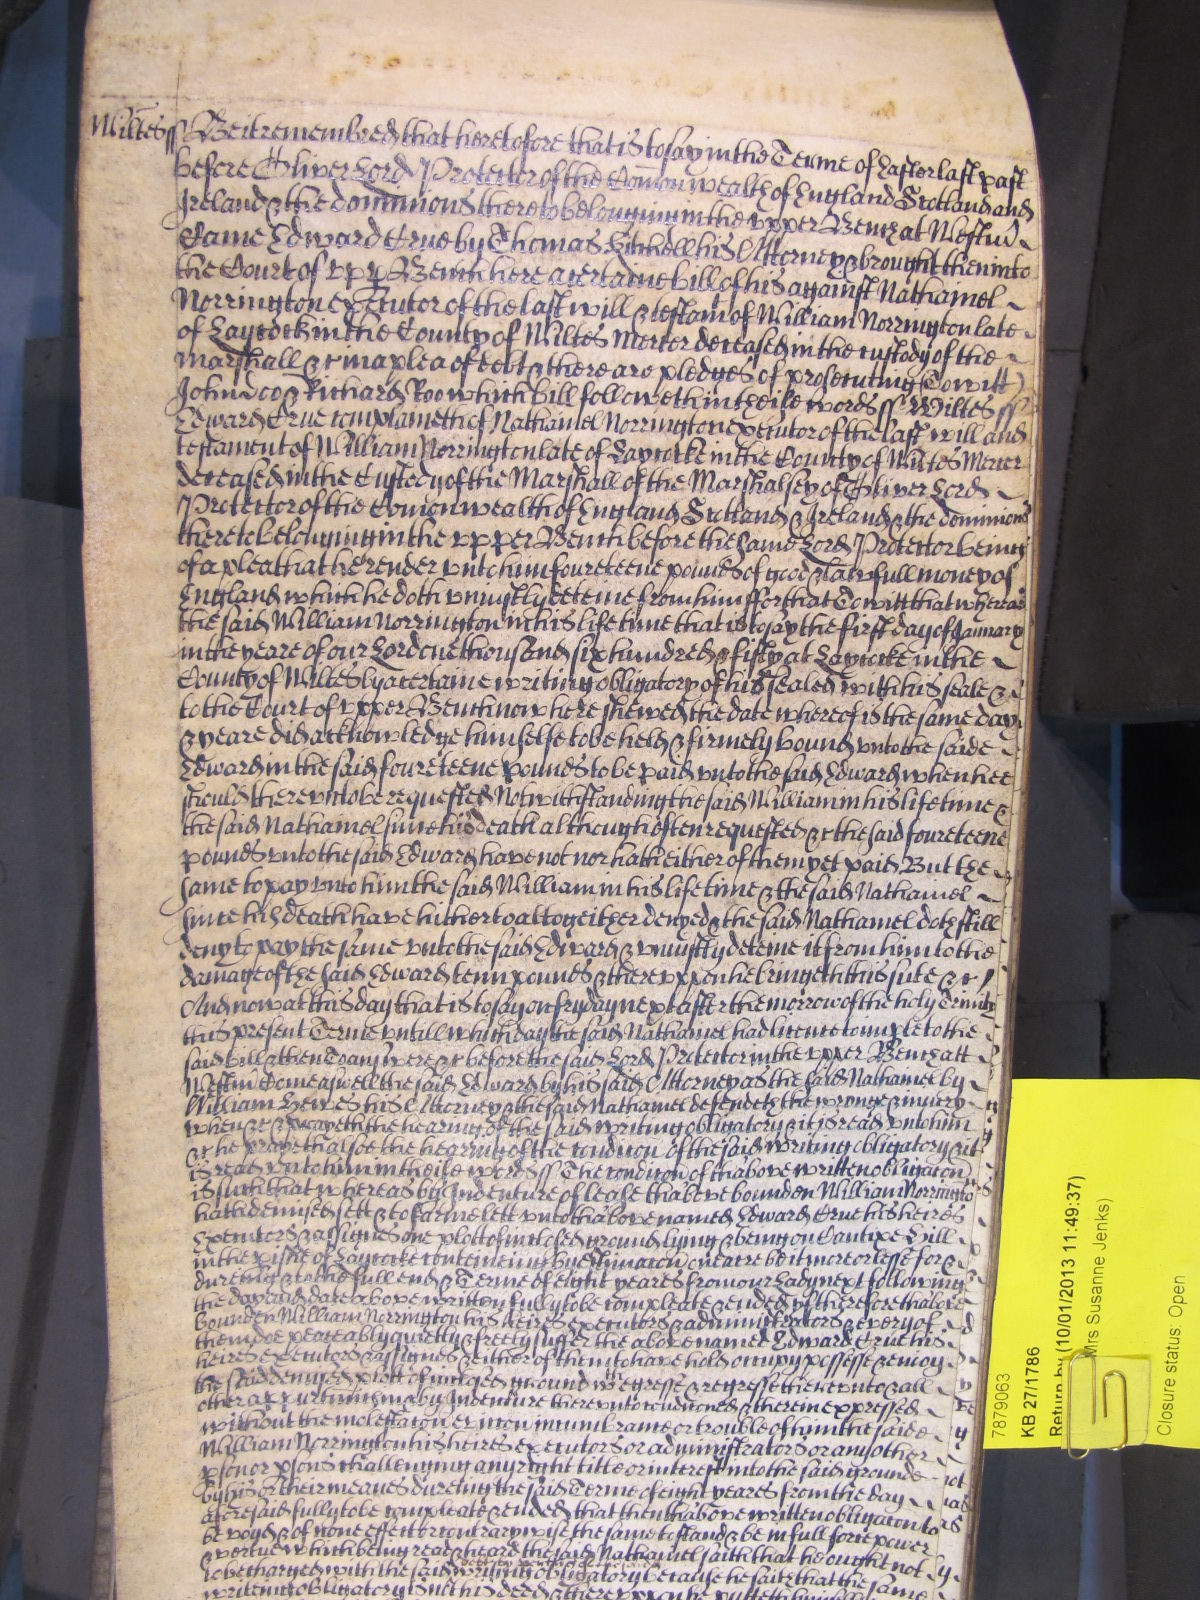 Wiltes ss Be it remembred that heretofore that is to say in the Terme of Easter last past
before Oliver Lord Protector of the Comon wealth of England Scotland and
Ireland & the dominions thereto belonging in the upper Bench at Westm
Came Edward Crue by Thomas his Attorney & brought then into
the Court of upp Bench here a certaine bill of his against Nathaniel
Norrington executor of the last will & testam of William Norrington late
of Laycock in the County of Wiltes Mercer deceased in the custody of the
marshall &c in a plea of debt & there are pledges of prosecuting Towitt
John doo & Richard Roo which bill followeth in theise words ss Wiltes ss
Edward Crue complaineth of Nathaniel Norrington executor of the last will and
testament of William Norrington late of Laycocke in the County of Wiltes Mercer
deceased in the Custody of the Marshall of the Marshalsey of Oliver Lord
Protector of the Comon wealth of England Scotland & Ireland & the dominions
thereto belonging in the upper Bench before the same Lord Protector being
of a plea that he render unto him foureteene pounds of good & lawfull money of
England which he doth uniustly deteine from him ffor that Towitt that whereas
the said William Norrington in his life time that is to say the first day of January
in the yeare of our Lord one thousand six hundred & fifty at Laycocke in the
County of Wiltes by a certaine writing obligatory of his sealed with his seale &
to the Court of upper Bench now here shewed the date whereof is the same day
& yeare did acknowledge himselfe to be held & firmely bound unto the saide
Edward in the said foureteene pounds to be paid unto the said Edward when hee
should thereunto be requested Notwithstanding the said William in his life time &
the said Nathaniel since his death although often requested &c the said foureteene
pounds unto the said Edward have not nor hath either of them yet paid But the
same to pay unto him the said William in his life time & the said Nathaniel
since his death have hitherto altogeither denyed & the said Nathaniel doth still
deny to pay the same unto the said Edward & uniustly deteine it from him to the
damage of the said Edward tenn pounds & thereuppon he bringeth this suite &c
And now at this day that is to say on fryday next after the morrow of the holy Trinity
this present Terme untill which day the said Nathaniel had licence to imple to the
said bill & then to answere &c before the said Lord Protector in the upper Bench att
Westm Come aswell the said Edward by his said Attorney as the said Nathaniel by
William his Attorney & the said Nathaniel defendeth the wronge & iniury
when &c & prayeth the hearing of the said writing obligatory & it is read unto him
&c he prayeth alsoe the hearing of the condicon of the said writing obligatory & it
is read unto him in theise words ss The condicon of thabove written obligacon
is such that whereas by Indenture of lease thabove bounden William Norrington
hath demised sett & to farme lett unto thabove named Edward Crue his heires
Executors & assignes one plott of inclosed ground lying & being on Hill
in the pishe of Laycocke conteineing by estimacon one acre be it more or lesse for &
dureing & to the full end & Terme of eight yeares from our Lady next following
the day and date above written fully to be compleate & ended yf therefore thabove
bounden William Norrington his heires executors & administrators & every of
them doe peaceably quietly & freely suffer the above named Edward Crue his
heires Executors & assignes & either of them to have hold occupy possesse & enioy
the said demised plott of inclosed ground wth egresse & regresse thereunto & all
other appurtin in by Indenture thereunto condiconed & therein expressed
without the molestacon eviccon incumbrance or trouble of him the saide
William Norrington his heires executors or administrators or any other
pson or psons challenging any right title or interest into the said grounde
by his or their meanes dureing the said Terme of eight yeares from the day
aforesaid fully to be compleate & ended that then thabove written obligacon to
be voyd & of none effect or contrarywise the same to stand & be in full force power
& vertue which being read & heard the said Nathaniel saith that he ought not
to be charged with the said debt by vertue of the said writing obligatory because he saith that the same
writeing obligatory is not his deed & thereuppon he putteth himselfe
7879063
KB 27/1786
Return by (10/01/2013 11:49:37)
Mrs Susanne Jenks)
Closure status: Open